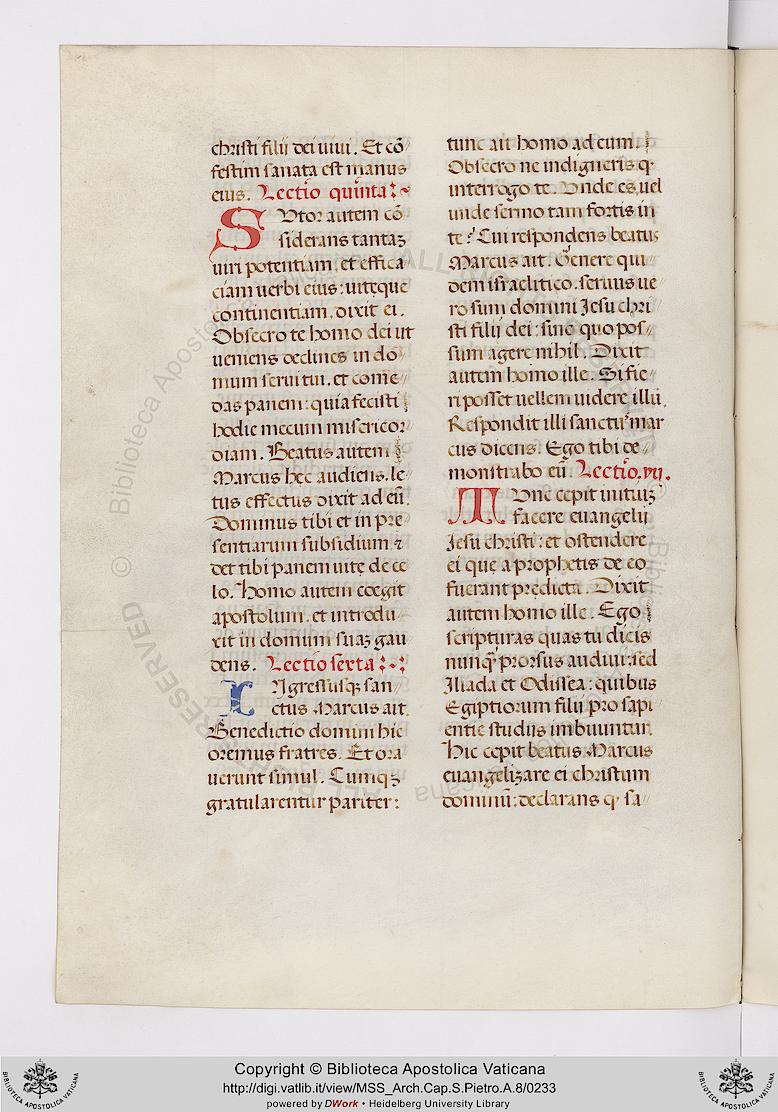 christi filij dei uiui. Et cō
festim sanata est manus
eius. Lectio quinta
SVtor autem cō
siderans tantaꝫ
uiri potentiam, et effica
ciam uerbi eius: uiteque
continentiam, dixit ei.
Obsecro te homo dei ut
ueniens declines in do
mum serui tui, et come
das panem: quia fecisti
hodie mecum misericor
diam. Beatus autem
Marcus hec audiens, le
tus effectus dixit ad eū.
Dominus tibi et in pre
sentiarum subsidium ⁊
det tibi panem uitę de cę
lo. Homo autem coegit
apostolum, et introdu
xit in domum suaꝫ gau
dens. Lectio sexta
INgressusqꝫ san
ctus Marcus ait.
Benedictio domini hic
oremus fratres. Et ora
uerunt simul. Cumqꝫ
gratularentur pariter:
tunc ait homo ad eum.
Obsecro ne indigneris q
interrogo te. Vnde es, uel
unde sermo tam fortis in
te? Cui respondens beatus
Marcus ait. Genere qui
dem israelitico, seruus ue
ro sum domini Jesu chri
sti filij dei: sine quo pos
sum agere nihil. Dixit
autem homo ille. Si fie
ri posset uellem uidere illū.
Respondit illi sanctus mar
cus dicens. Ego tibi de
monstrabo eū. Lectio. vij.
TVnc cepit inituiꝫ
facere euangelij
Jesu christi: et ostendere
ei que a prophetis de eo
fuerant predicta. Dixit
autem homo ille. Ego
scripturas quas tu dicis
nunq̄ prorsus audiui: sed
Iliada et Odissea: quibus
Egiptiorum filij pro sapi
entie studijs imbuuntur.
Hic cepit beatus Marcus
euangelizare ei christum
dominū: declarans q sa
© Biblioteca Apostolica Vaticana
ALL RIGHTS RESERVED
Copyright © Biblioteca Apostolica Vaticana
http://digi.vatlib.it/view/MSS_Arch.Cap.S.Pietro.A.8/0233
powered by DWork • Heidelberg University Library
BIBLIOTECA APOSTOLICA VATICANA
BIBLIOTECA APOSTOLICA VATICANA